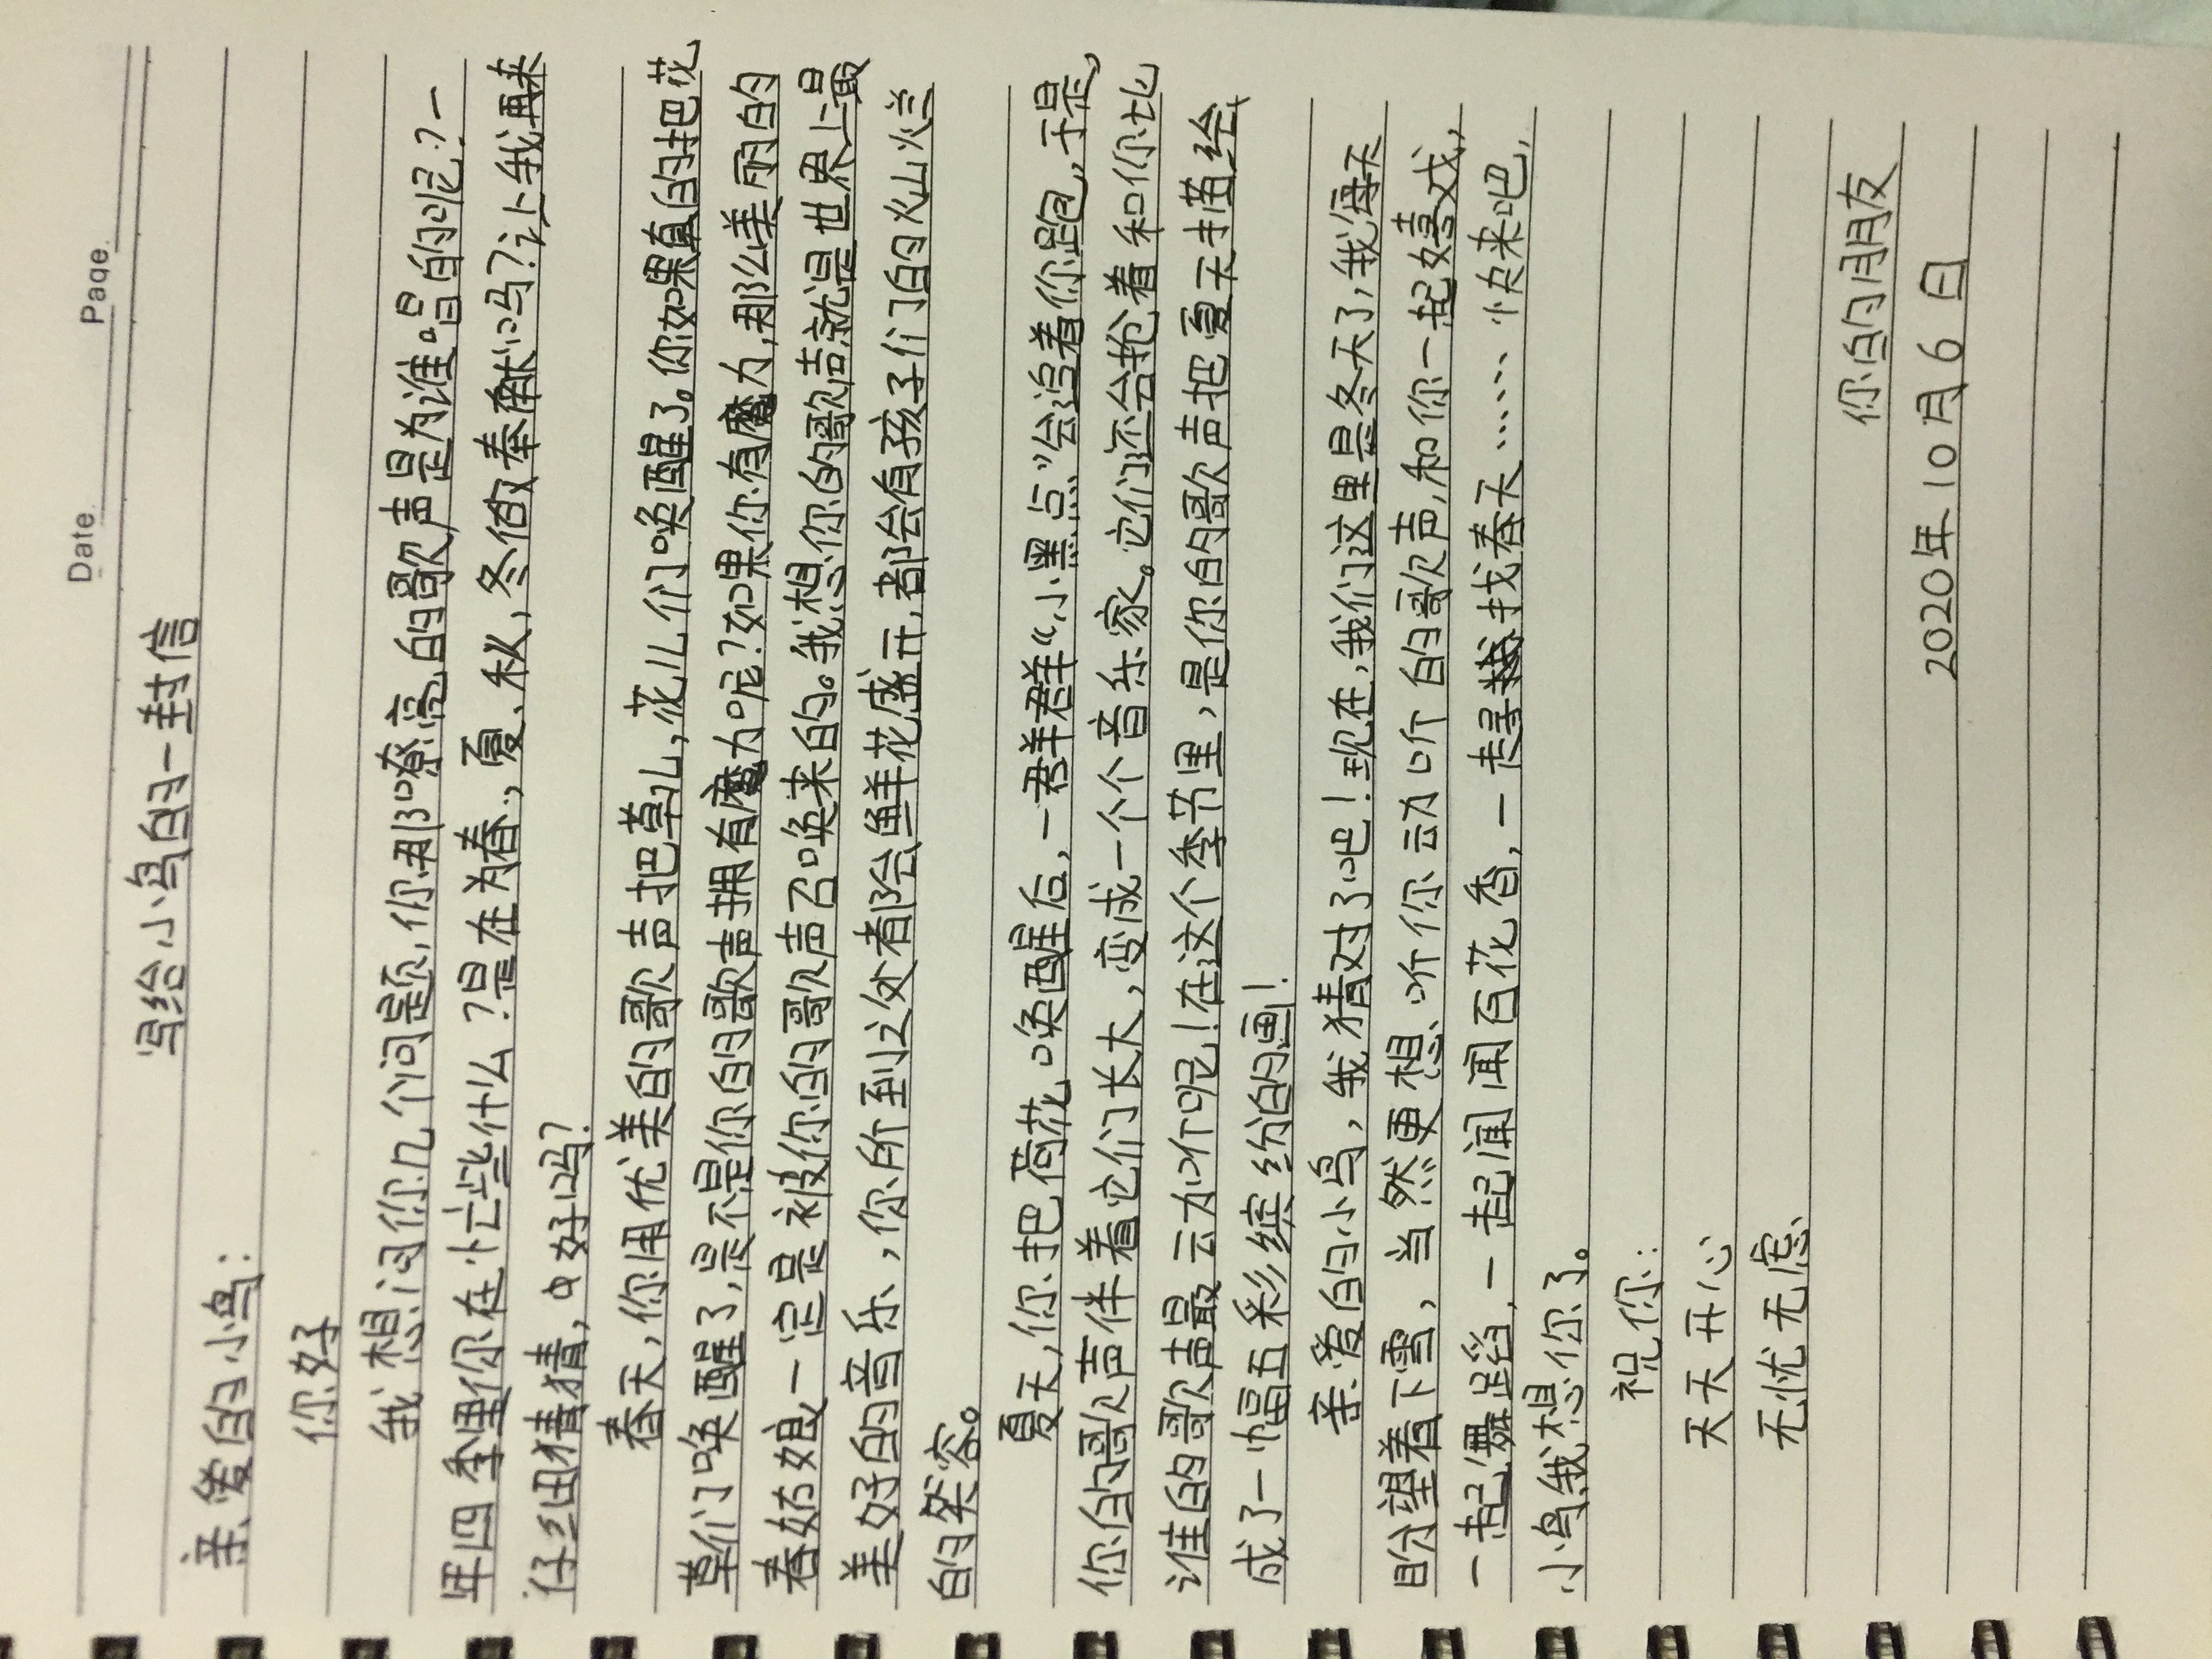 Date.
Page.
写给小鸟的一封信
亲爱的小鸟：
你好
我想问你几个问题，你那嘹亮的歌声是为谁唱的呢？一
年四季里你在忙些什么？是在为春、夏、秋、冬做奉献吗？让我再来
仔细猜猜，好吗？
春天，你用优美的歌声把草儿，花儿们唤醒了。你如果真的把花
草们唤醒了，是不是你的歌声拥有魔力呢？如果你有魔力，那么美丽的
春姑娘一定是被你的歌声召唤来的。我想你的歌声就是世界上最
美好的音乐，你所到之处都会鲜花盛开，都会有孩子们的灿烂
的笑容。
夏天，你把荷花唤醒后，一群群“小黑点”会追着你跑，于是，
你的歌声伴着它们长大，变成一个个音乐家。它们还会抢着和你比
谁的歌声最动听呢！在这个季节里，是你的歌声把夏天描绘
成了一幅五彩缤纷的画！
亲爱的小鸟，我猜对了吧！现在，我们这里是冬天了，我每天
盼望着下雪，当然更想听你动听的歌声，和你一起嬉戏，
一起舞蹈，一起闻闻百花香，一起找春天……快来吧，
小鸟我想你了。
祝你：
天天开心
无忧无虑
你的朋友
2020年10月6日